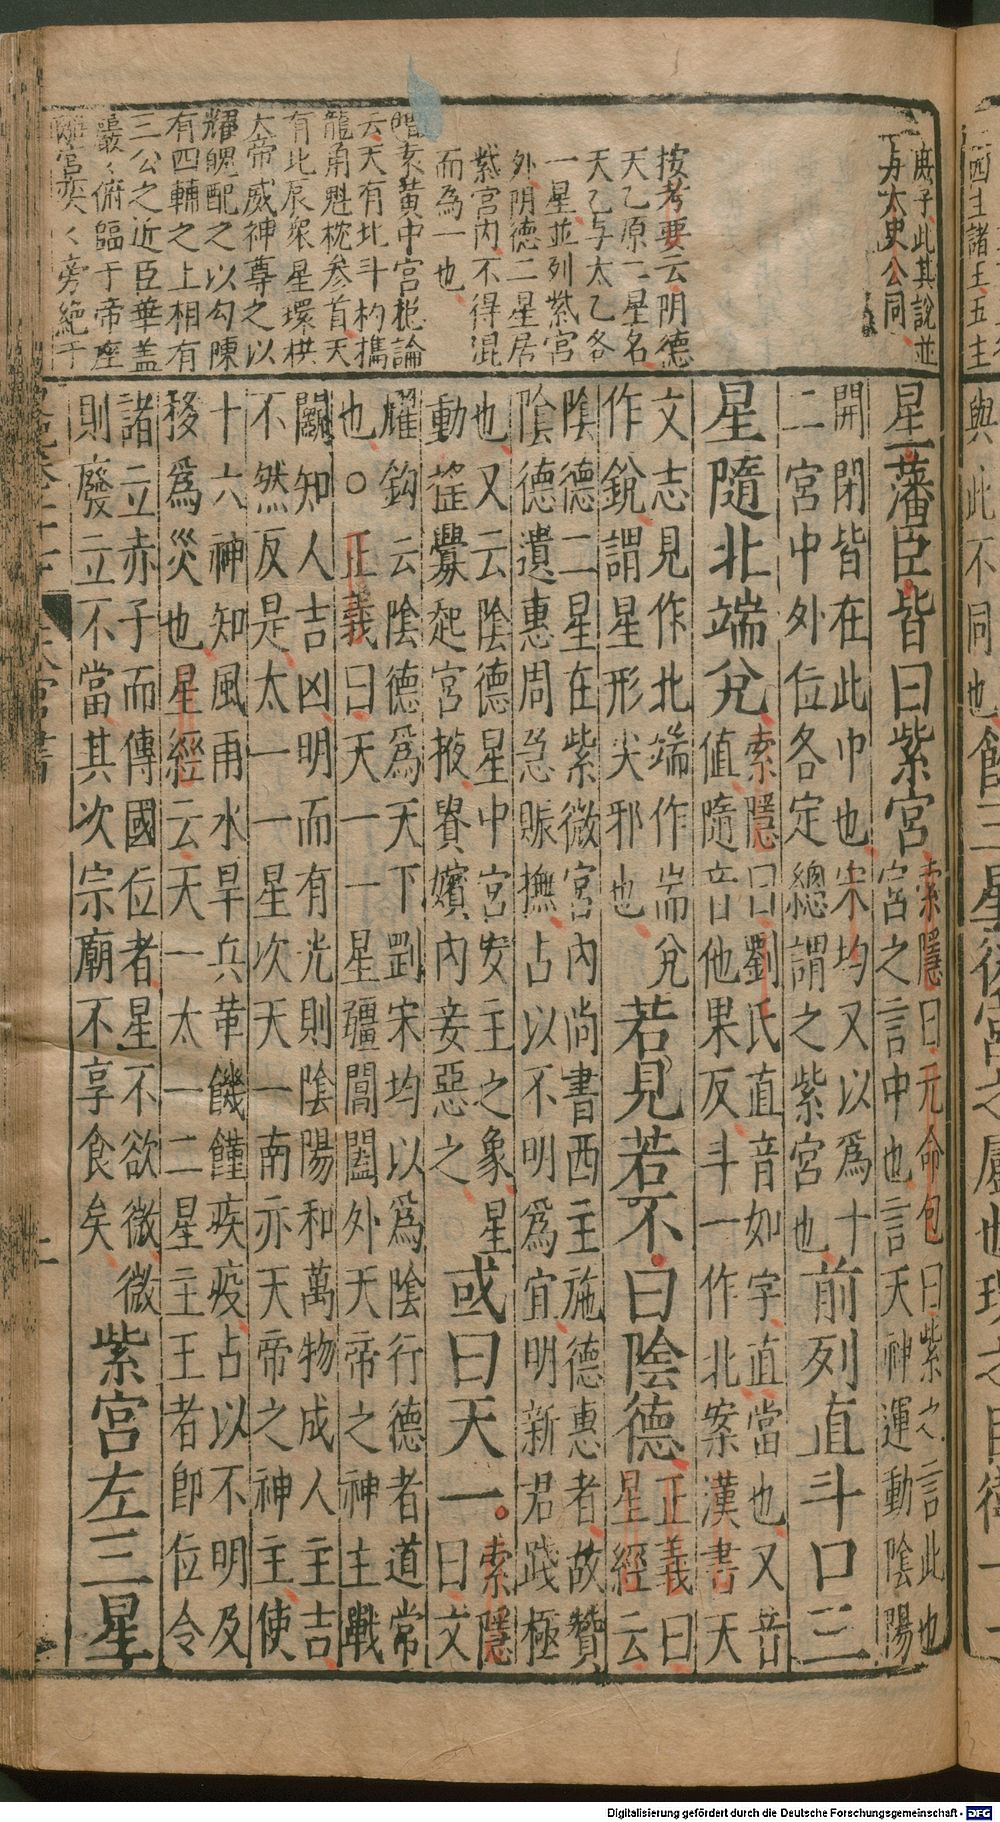 庶子此其說並
与太史公同
按考要云阴德
天乙原一星名
天乙与太乙各
一星並列紫宮
外阴德二星居
紫宮内不得混
而為一也
黄中宮枪論
云天有北斗杓攜
龍角魁枕參首天
有北辰衆星環拱
大帝威神尊之以
耀魄配之以勾陳
有四輔之上相有
三公之近臣華盖
嚴々俯臨于帝座
離宮奕々旁絶于
星藩臣皆曰紫宮
索隱曰元命包曰紫之言此也
宮之言中也言天神運動陰陽
開閉皆在此中也宋均又以爲十
二宮中外位各定總謂之紫宮也
前列直斗口三
星隨北端兌
索隱曰劉氏直音如字直當也又音
値隨音他果反斗一作北案漢書天
文志見作北端作耑兌
作銳謂星形尖邪也
若見若不曰陰德
正義曰
星經云
陰德二星在紫微宮内尚書西主施德惠者故贊
陰德遺惠周急賑撫占以不明爲宜明新君踐極
也又云陰德星中宮女主之象星
動揺釁起宮掖嬪内妾惡之
或曰天一
索隱
曰文
耀鈎云陰德爲天下剛宋均以爲陰行德者道常
也○正義曰天一一星疆閶闔外天帝之神主戰
鬭知人吉凶明而有光則陰陽和萬物成人主吉
不然反是太一一星次天一南亦天帝之神主使
十六神知風雨水旱兵革饑饉疾疫占以不明及
移爲災也星經云天一太一二星主王者即位令
諸立赤子而傳國位者星不欲微微
則廢立不當其次宗廟不享食矣
紫宮左三星
天官書
四主諸王五主
與此不同也
Digitalisierung gefördert durch die Deutsche Forschungsgemeinschaft - DFG